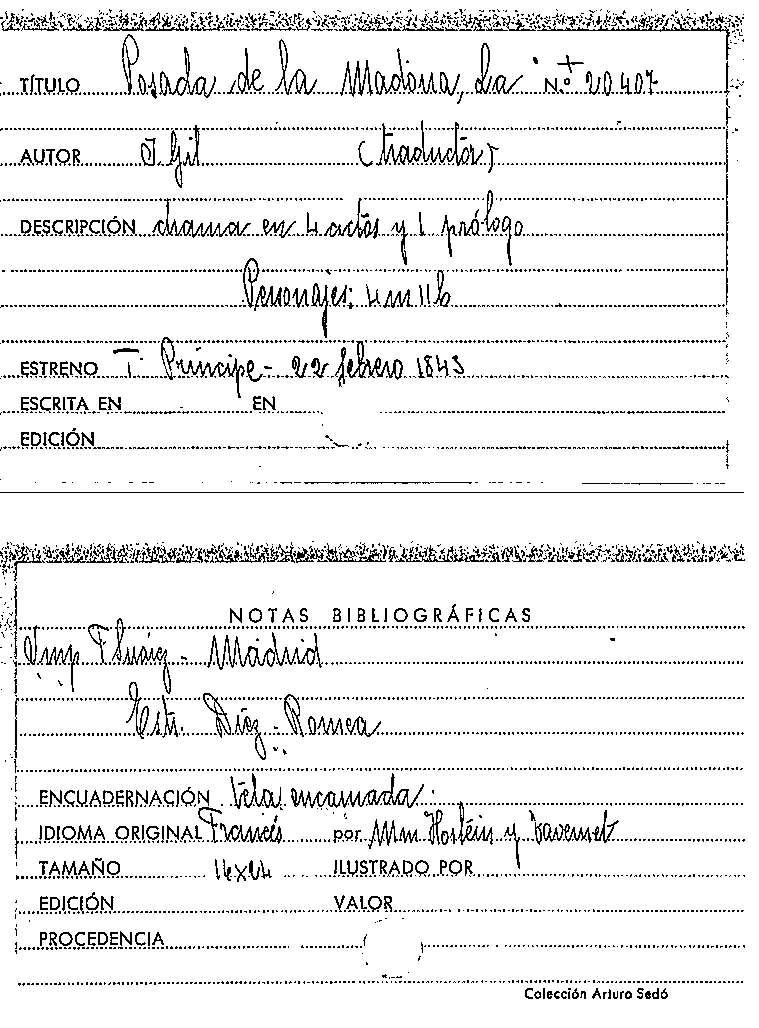 TÍTULO Posada de la Madona, La N.º 20407
AUTOR I. Gil (traductor)
DESCRIPCIÓN drama en 4 actos y 1 prólogo
Personajes: 4 m 11 h
ESTRENO T. Príncipe - 22 febrero 1843
ESCRITA EN EN
EDICIÓN
NOTAS BIBLIOGRÁFICAS
Imp F Suárez - Madrid
Estr. Díez - Romea
ENCUADERNACIÓN Tela encarnada
IDIOMA ORIGINAL Francés por Mm Hostein y
TAMAÑO ILUSTRADO POR
EDICIÓN VALOR
PROCEDENCIA
Colección Arturo Sedó